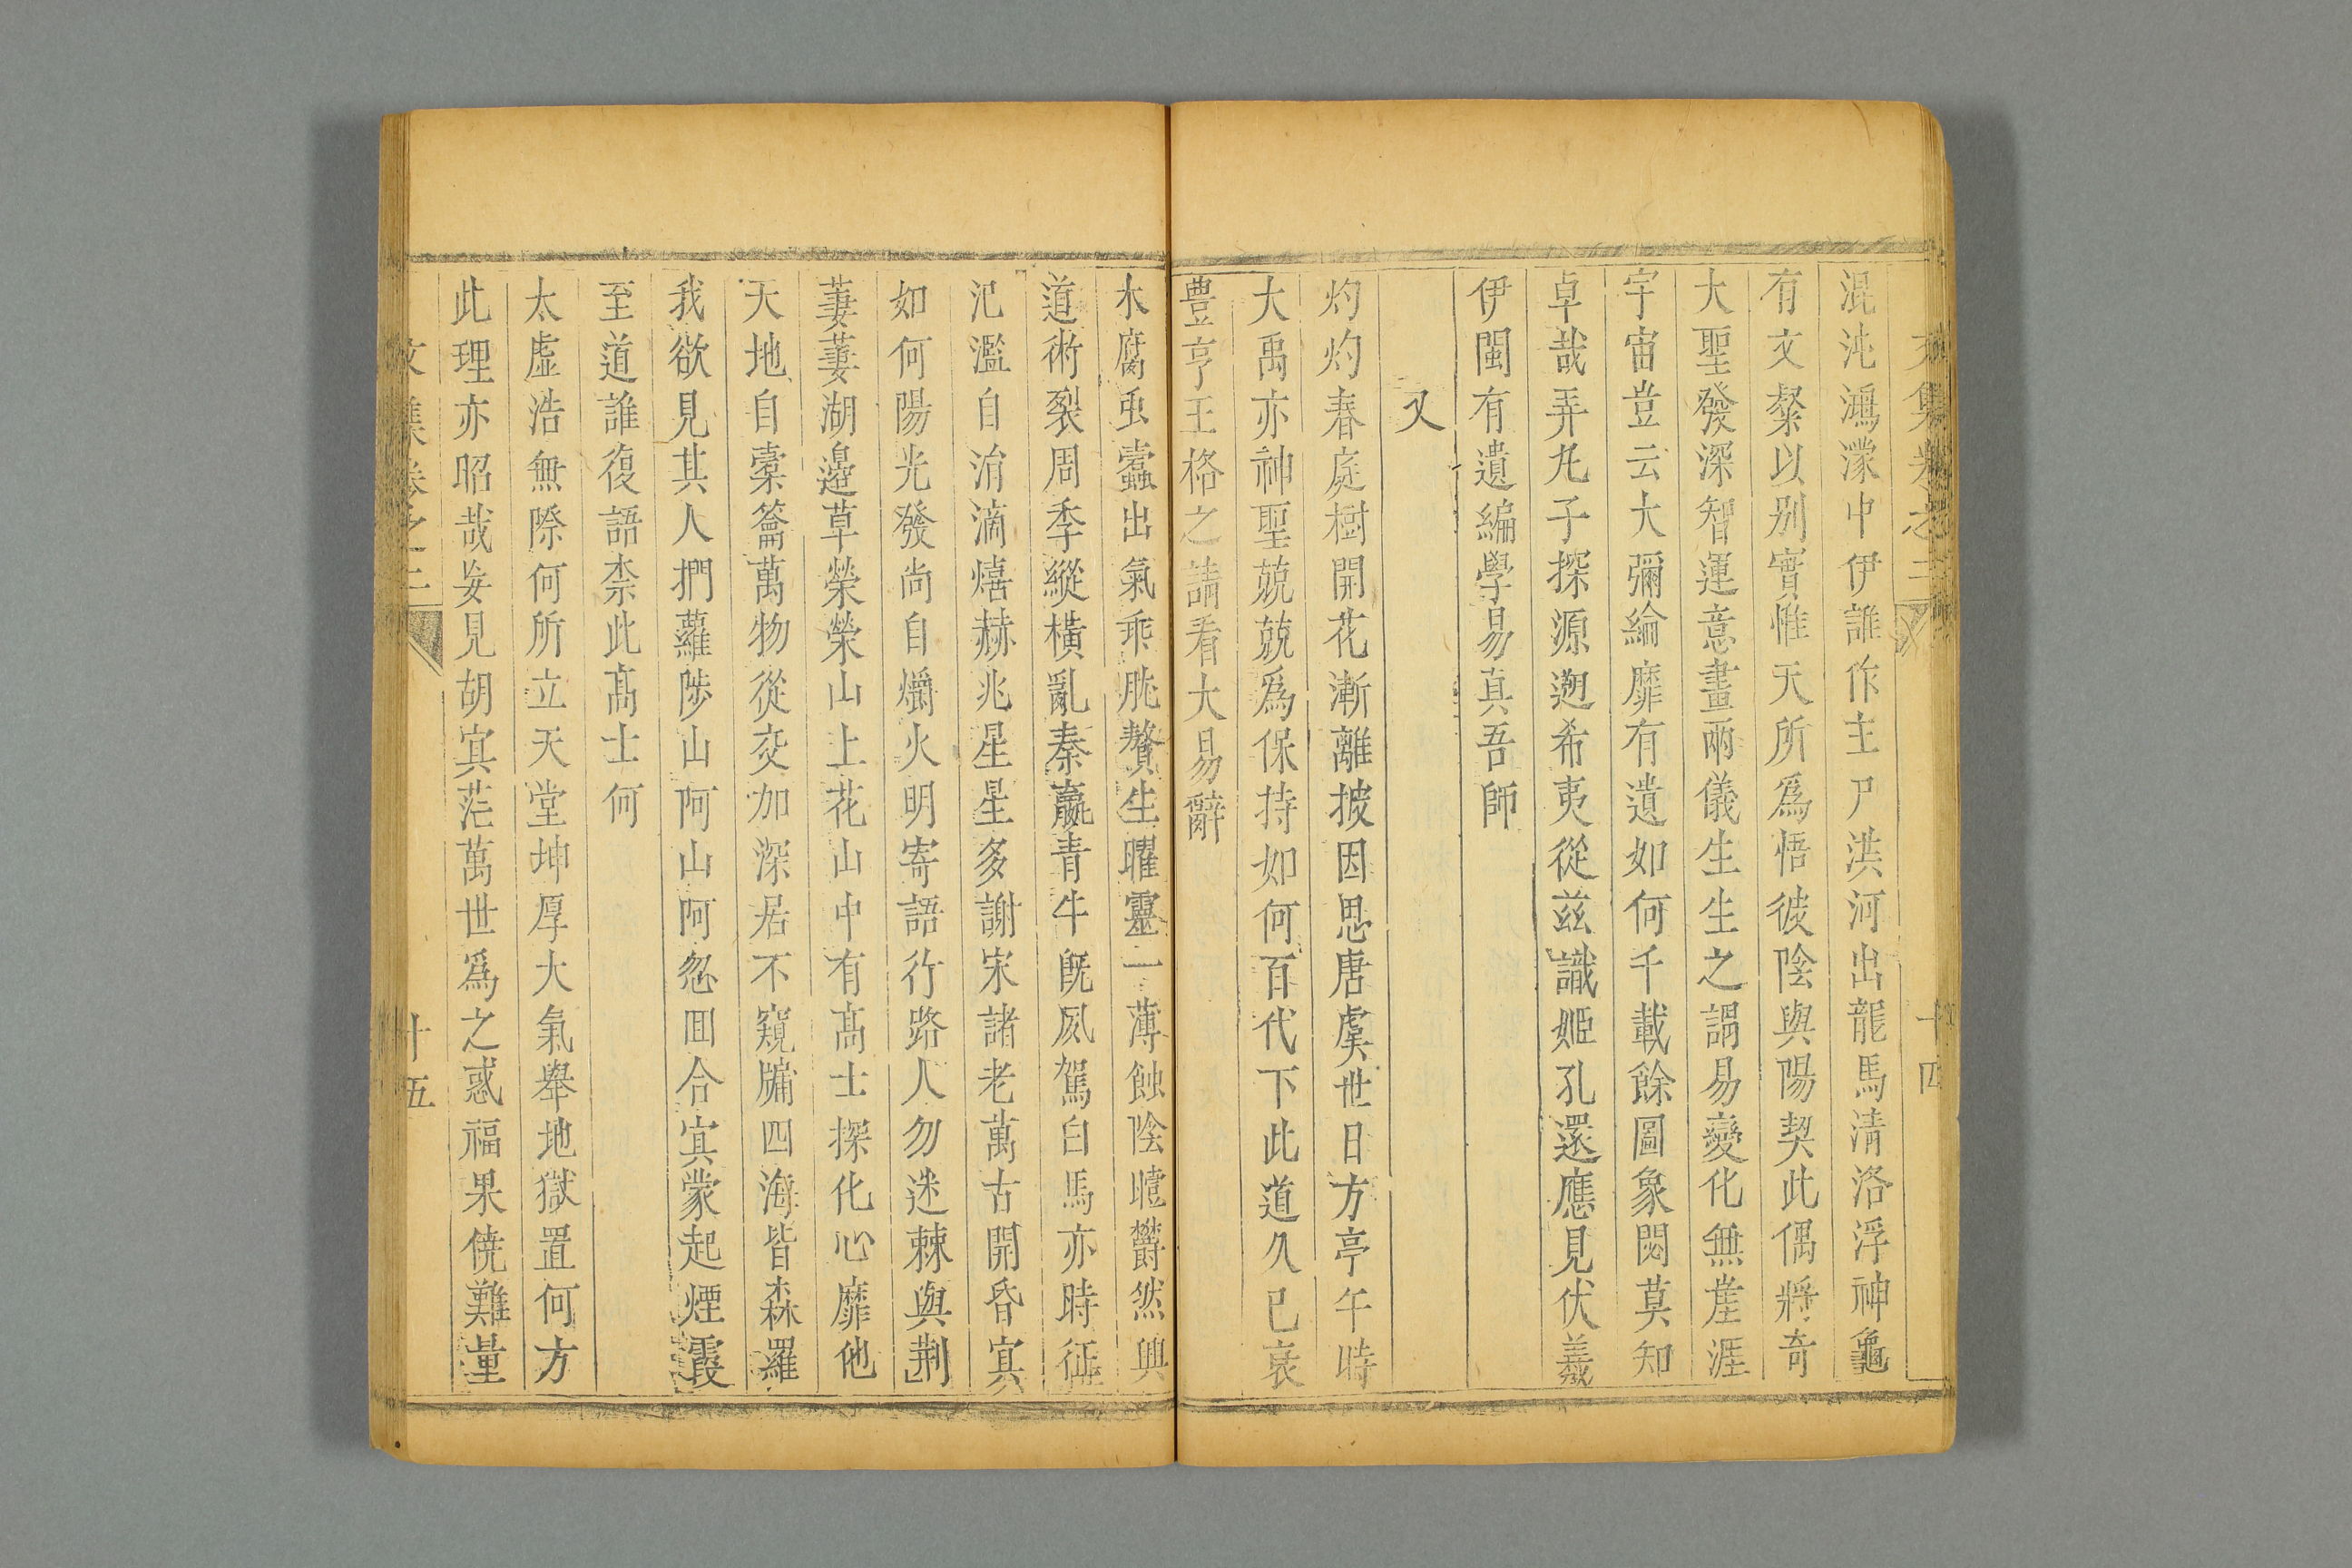 文集卷之二 十四
混沌鴻濛中伊誰作主尸洪河出龍馬清洛浮神龜
有文粲以别實惟天所爲悟彼陰與陽契此偶將奇
大聖發深智運意畫兩儀生生之謂易變化無崖涯
宇宙豈云大彌綸靡有遺如何千載餘圖象閟莫知
卓哉弄丸子探源遡希夷從兹識姬孔還應見伏羲
伊閩有遺編學易真吾師
又
灼灼春庭樹開花漸離披因思唐虞世日方亭午時
大禹亦神聖兢兢爲保持如何百代下此道久已衰
豊亨王格之請看大易辭
木腐虫蠹出氣乖胧贅生曜靈一薄蝕陰曀欝然興
道術裂周季縱橫亂秦嬴青牛旣夙駕白馬亦時征
氾濫自涓滴熺赫兆星星多謝宋諸老萬古開昏冥
如何陽光發尚自爝火明寄語行路人勿迷棘與荆
萋萋湖邉草榮榮山上花山中有髙士探化心靡他
天地自橐籥萬物從交加深居不窺牖四海皆森羅
我欲見其人捫蘿陟山阿山阿忽回合冥蒙起煙霞
至道誰復語柰此髙士何
太虛浩無際何所立天堂坤厚大氣舉地獄置何方
此理亦昭哉妄見胡冥茫萬世爲之惑福果僥難量
文集卷之二 十五